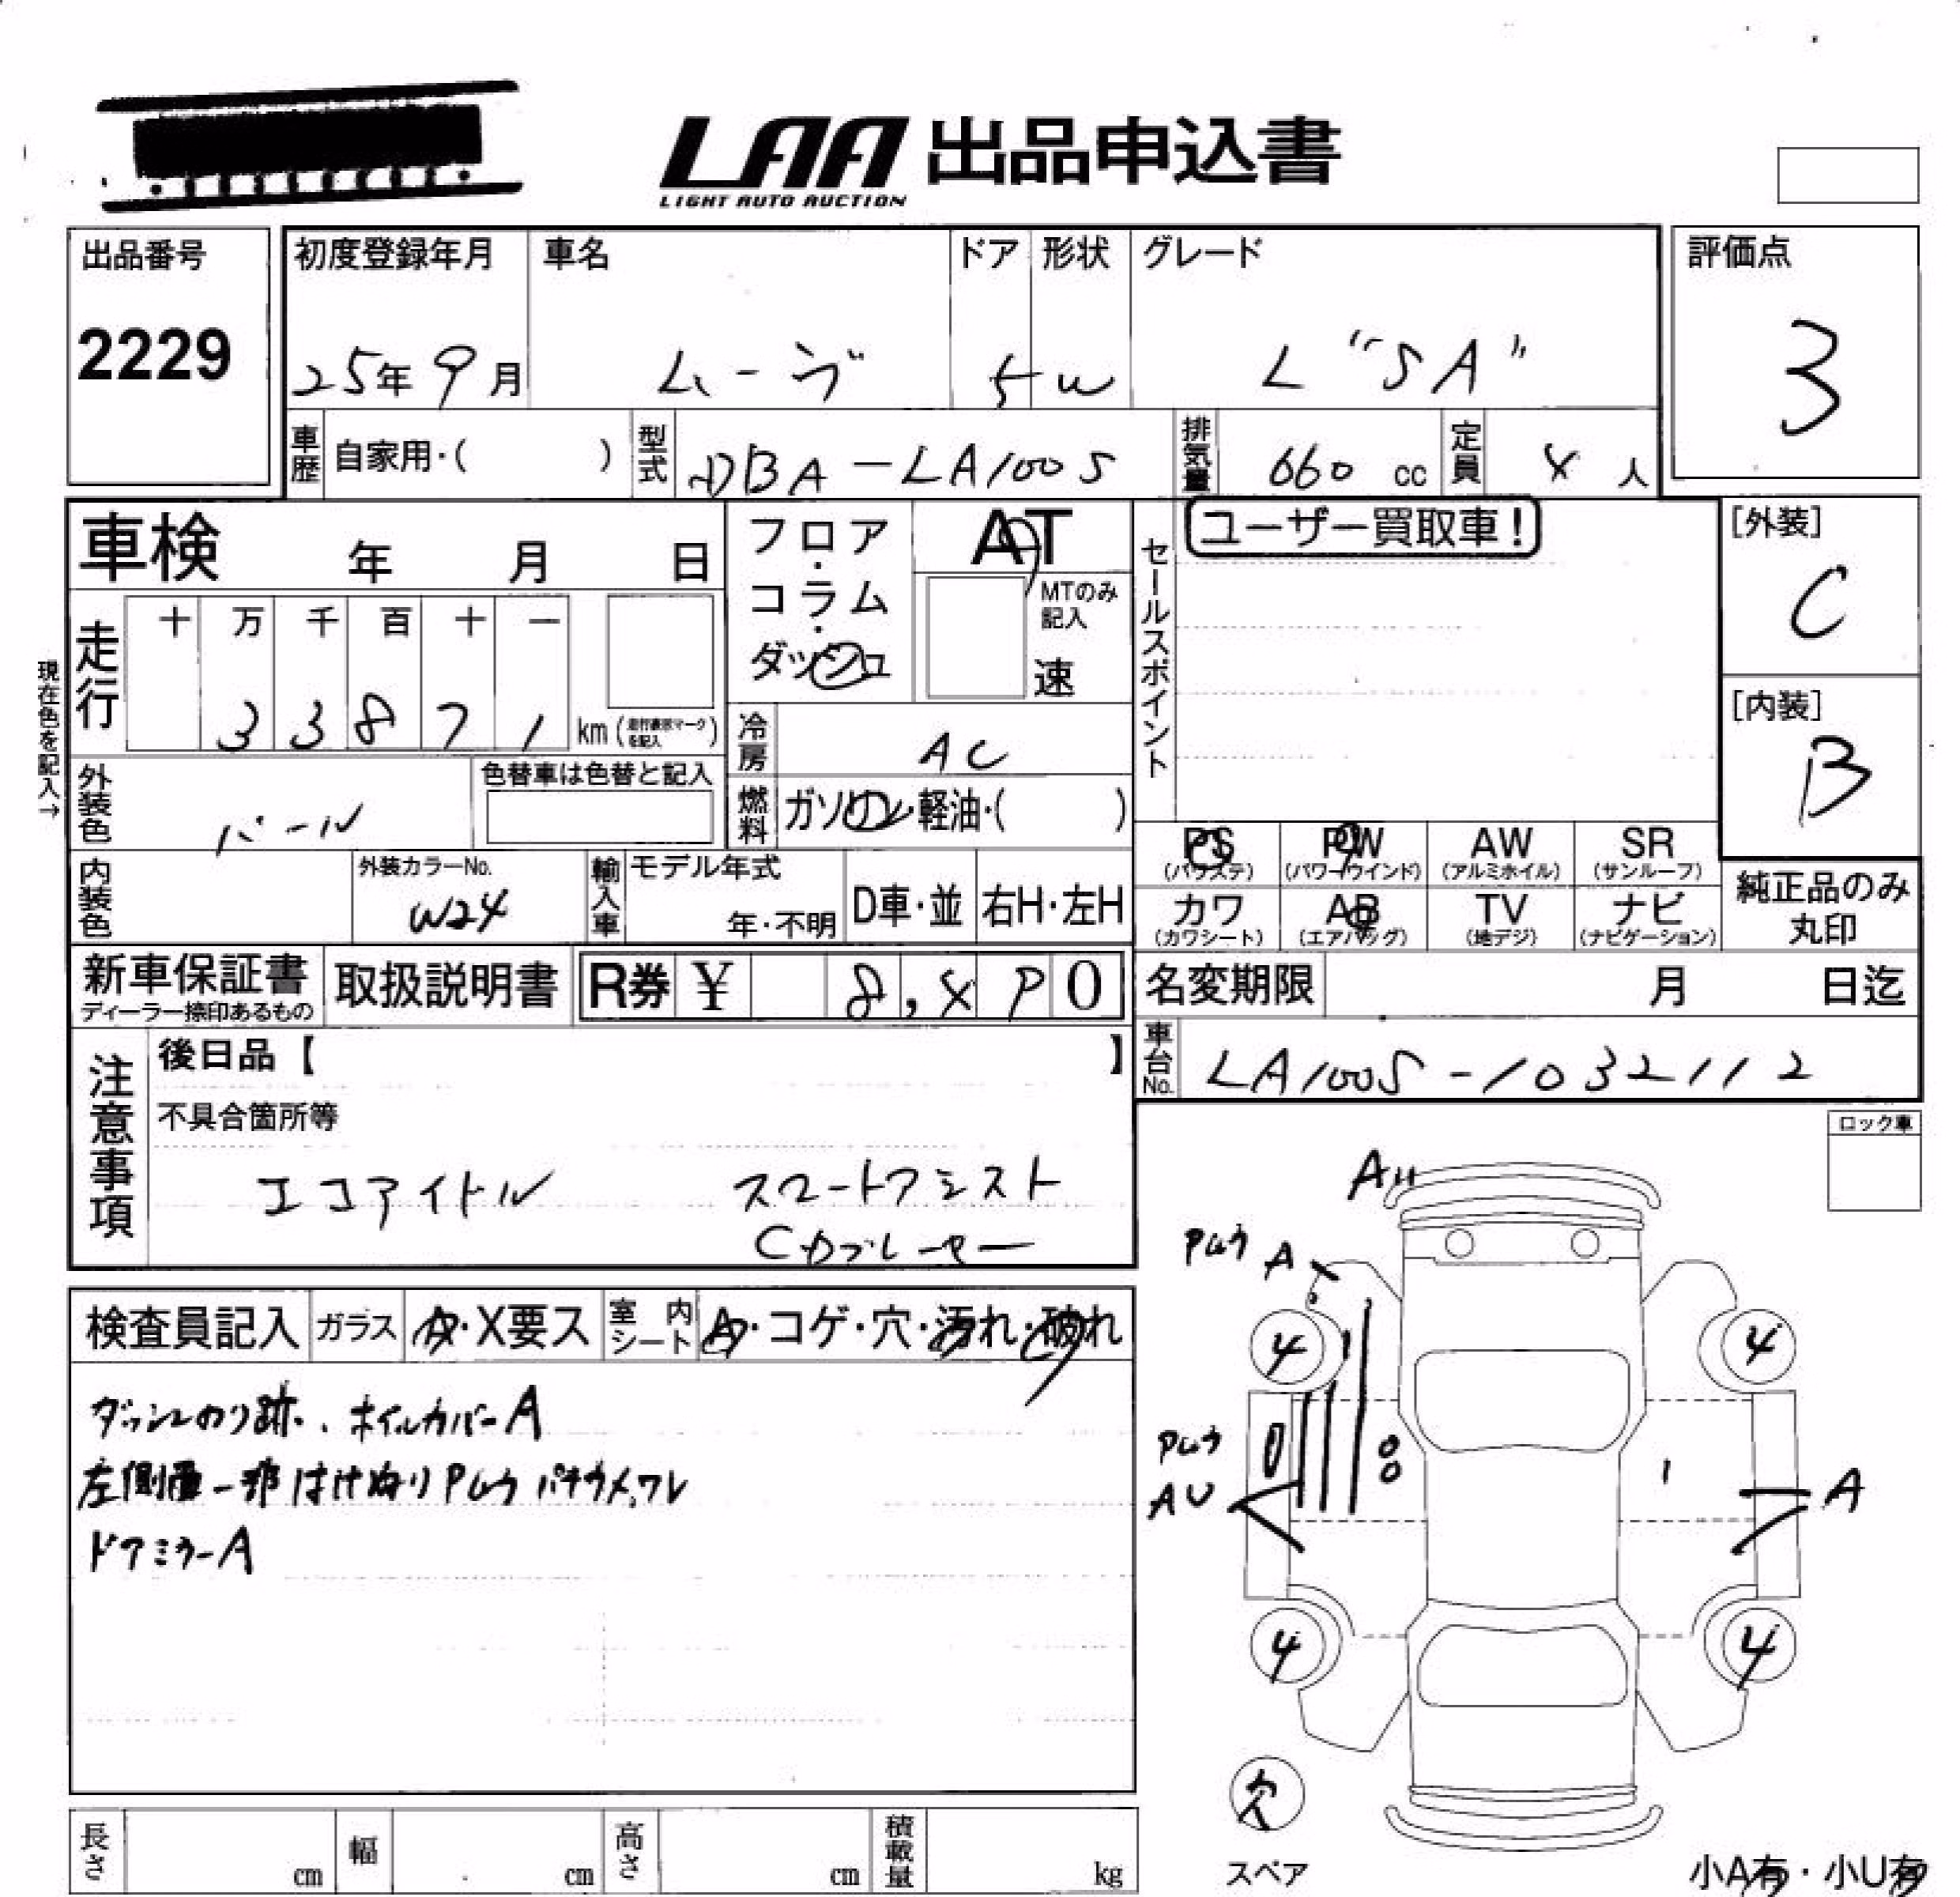 LAA 出品申込書
LIGHT AUTO AUCTION
出品番号
2229
初度登録年月 車名 ドア 形状 グレード
25年 9月 ムーヴ 5 W L "SA"
評価点
3
車歴 自家用・( ) 型式 DBA-LA100S 排気量 660 cc 定員 4 人
車検 年 月 日
フロア・コラム・ダッシュ
AT
MTのみ記入
速
セールスポイント
ユーザー買取車!
[外装]
C
[内装]
B
現在色を記入→
走行 十 万 千 百 十 一
3 3 8 7 1 km (走行表示マークを記入)
冷房 AC
外装色 パール 色替車は色替と記入
燃料 ガソリン・軽油・( )
内装色 外装カラーNo. W24 輸入車 モデル年式 年・不明 D車・並 右H・左H
PS (パワステ) PW (パワーウインド) AW (アルミホイル) SR (サンルーフ)
カワ (カワシート) AB (エアバッグ) TV (地デジ) ナビ (ナビゲーション)
純正品のみ丸印
新車保証書 ディーラー捺印あるもの 取扱説明書 R券 ¥ 8,490
名変期限 月 日迄
車台No. LA100S-1032112
注意事項
後日品【 】
不具合箇所等
エコアイドル スマートアシスト
Cカブレーキー
ロック車
検査員記入 ガラス A・X要ス 室内シート A・コゲ・穴・汚れ・破れ
ダッシュのり跡、ホイルカバーA
左側面一部はけぬりPムラ パテウメ、ワレ
ドアミラーA
A
Pムラ A
4 4
Pムラ
AU A
4 4
欠
スペア
小A有・小U有
長さ cm 幅 cm 高さ cm 積載量 kg